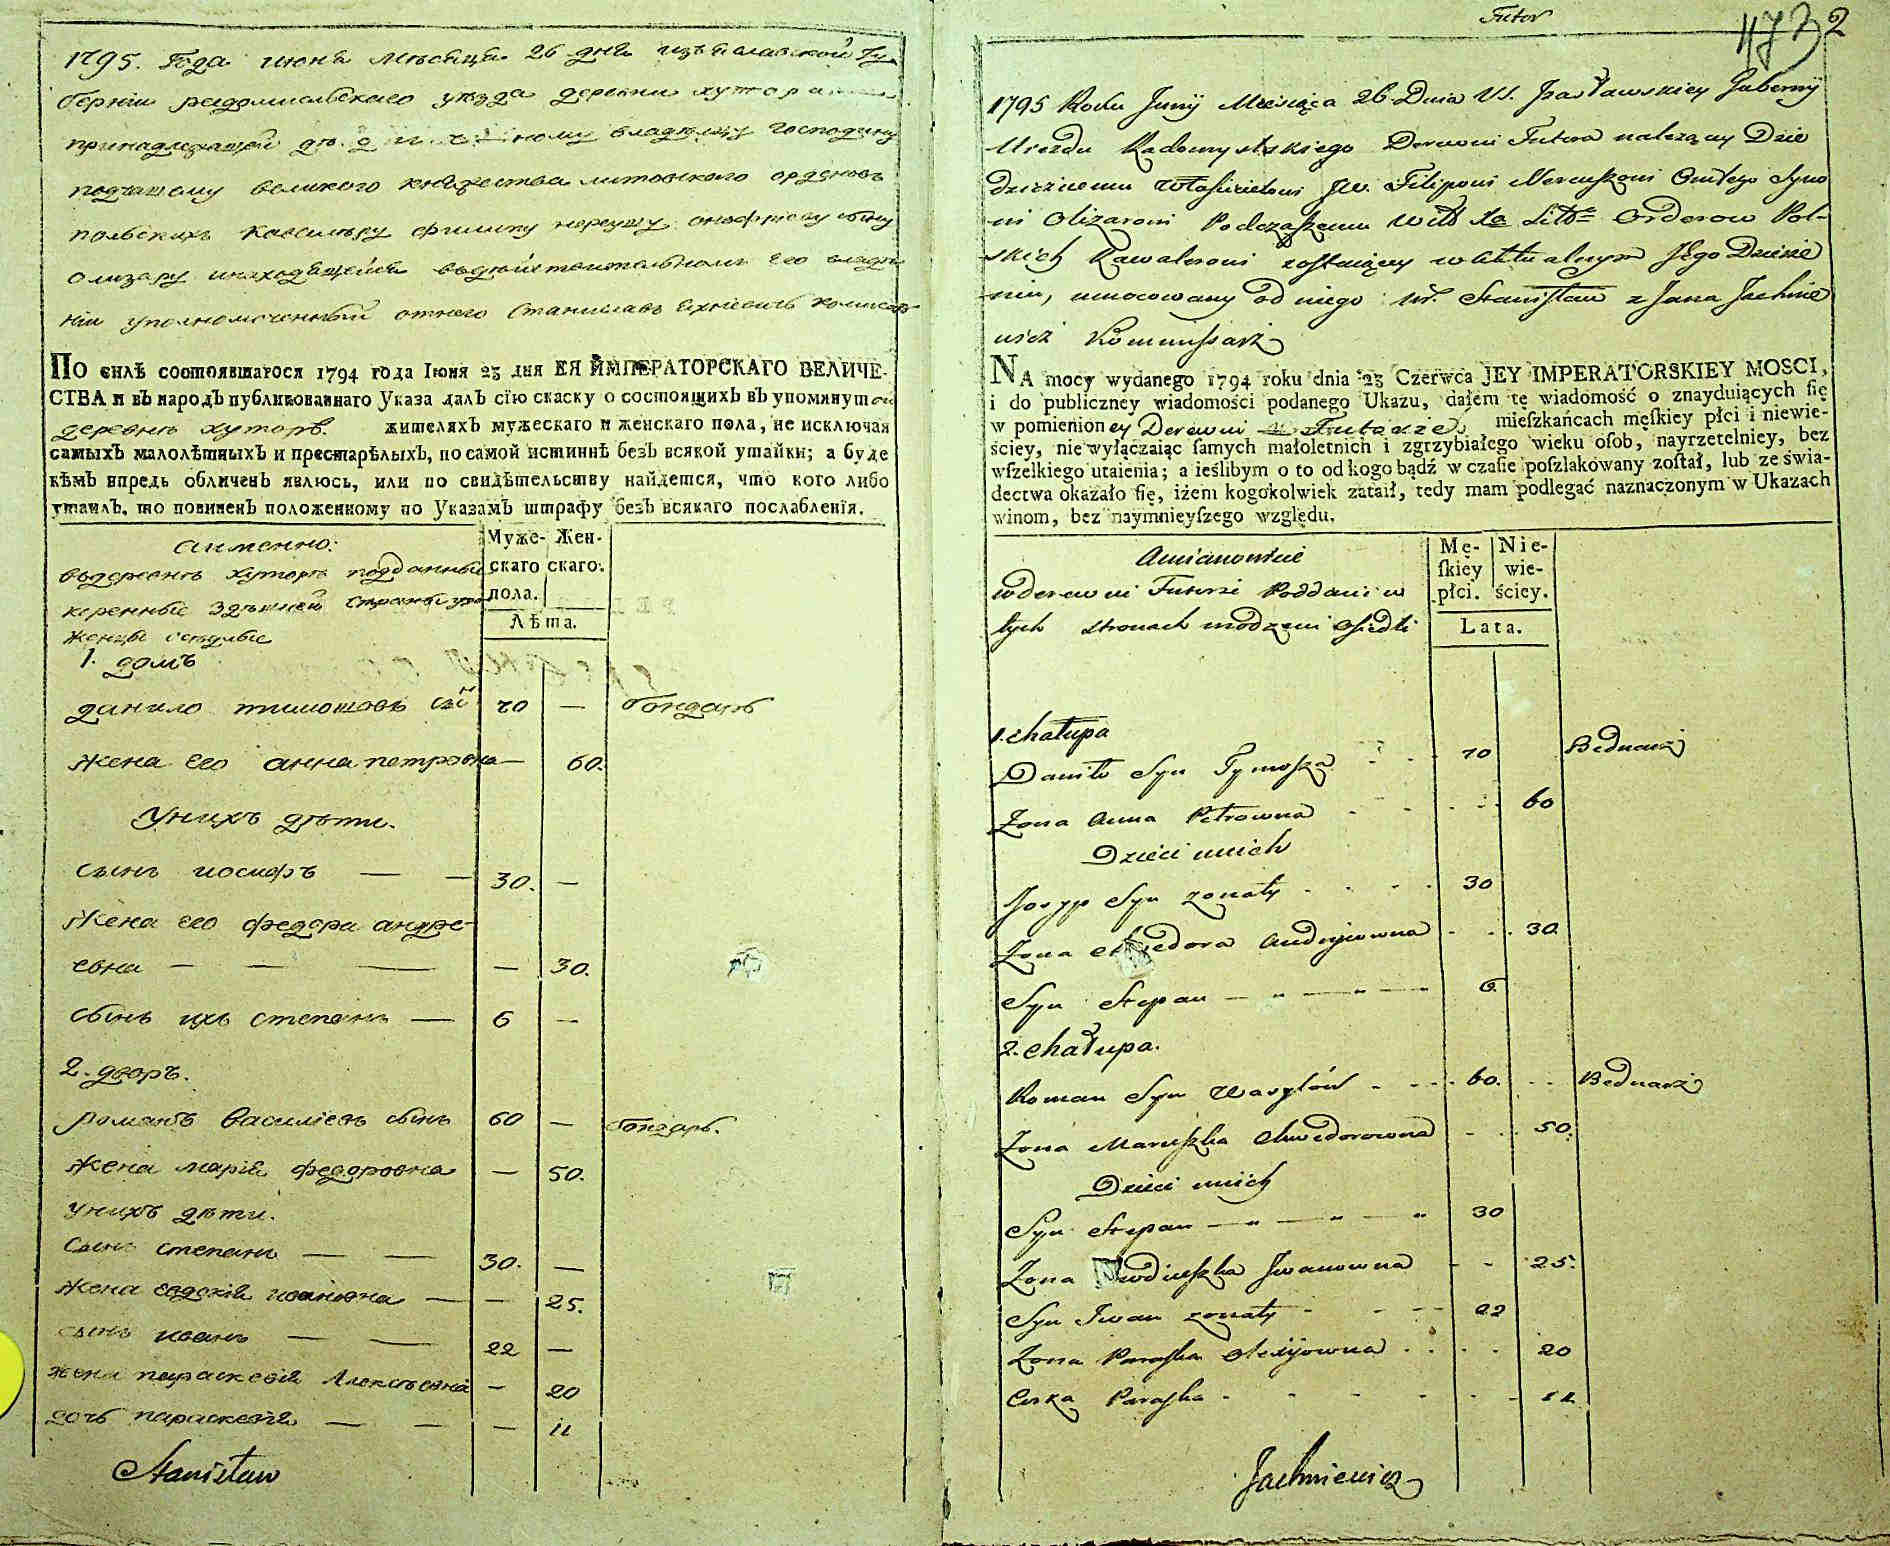 1795. Года июня мѣсяца 26 дня изъяславской гу
берніи радомысльскаго уѣзда деревни хутора
принадлежащей дѣдичному владѣльцу господину
подчашему великого княжества литовского орденовъ
польскихъ кавалеру филипу нереушу онофріеву сыну
олизару инаходящейся вьдѣйствительномъ его владѣ
ніи уполномоченный отнего Станиславъ Яхневичь комисаръ
ПО силѣ состоявшагося 1794 года Іюня 23 дня ЕЯ ИМПЕРАТОРСКАГО ВЕЛИЧЕ-
СТВА и въ народъ публикованнаго Указа далъ сїю скаску о состоящихъ въ упомянутой
деревнѣ хуторѣ. жителяхъ мужескаго и женскаго пола, не исключая
самыхъ малолѣтныхъ и престарѣлыхъ, по самой истиннѣ безъ всякой утайки; а буде
кѣмъ впредь обличенъ явлюсь, или по свидѣтельству найдется, что кого либо
утаилъ, то повиненъ положенному по Указамъ штрафу безъ всякаго послабленїя.
аименно:
вьдеревнѣ хуторѣ подданные
коренные здѣшней страны уро
женцы
Муже- Жен-
скаго скаго.
пола.
Лѣта.
1. домъ
данило тимошовъ сынъ 70 — бондарь
жена его анна петровна — 60.
Унихъ дѣти.
сынъ иосифъ — — 30. —
жена его федора андре-
евна — — — — 30.
сынъ ихъ степанъ — 6 —
2. дворъ.
романъ василіевъ сынъ 60 — бондарь.
жена марія федоровна — 50.
унихъ дѣти.
сынъ степанъ — — 30. —
жена евдокія ивановна — — 25.
сынъ иванъ — — 22 —
жена параскевія Алексѣевна — 20
дочь параскевія — — — 11
Stanisław
Futor
473 2
1795 Roku Junij Miesiąca 26 Dnia W. Izasławskiey Guberny
Uiezdu Radomyslskiego Derewni Futora nalezącey Dzie
dzicznemu Włascicielowi JW. Filipowi Nereuszowi Onufrego Syno
wi Olizarowi Podczaszemu Wŏ Xa Litŏ Orderow Pol-
skich Kawalerowi zostaiącey w aktualnym Jego Dziedzie
niu, umocowany od niego Wr. Stanisław z Jana Jachnie
wicz Kommissarz
NA mocy wydanego 1794 roku dnia 23 Czerwca JEY IMPERATORSKIEY MOSCI,
i do publiczney wiadomości podanego Ukazu, dałem tę wiadomość o znayduiących się
w pomienioney Derewni w Futorze mieszkańcach męskiey płci i niewie-
ściey, nie wyłączaiąc samych małoletnich i zgrzybiałego wieku osob, nayrzetelniey, bez
wszelkiego utaienia; a ieślibym o to od kogo bądź w czasie poszlakowany został, lub ze świa-
dectwa okazało się, iżem kogokolwiek zataił, tedy mam podlegać naznaczonym w Ukazach
winom, bez naymnieyszego względu.
Amianowicie
w derewni Futorze Poddani w
tych stronach urodzeni Osiedli
Mę- Nie-
skiey wie-
płci. ściey.
Lata.
1. chałupa
Daniło Syn Tymosza 70 Bednarz
Zona Anna Petrowna 60
Dzieci unich
Josyp Syn zonaty 30
Zona Chwedora Andryiowna 30
Syn Stepan 6
2. chałupa.
Roman Syn Wasylów 60. Bednarz
Zona Maruszka Chwedorowna 50.
Dzieci unich
Syn Stepan 30
Zona Awdiuszka Jwanowna 25.
Syn Jwan zonaty 22
Zona Paraska Olexijowna 20
Curka Paraska 11
Jachniewicz